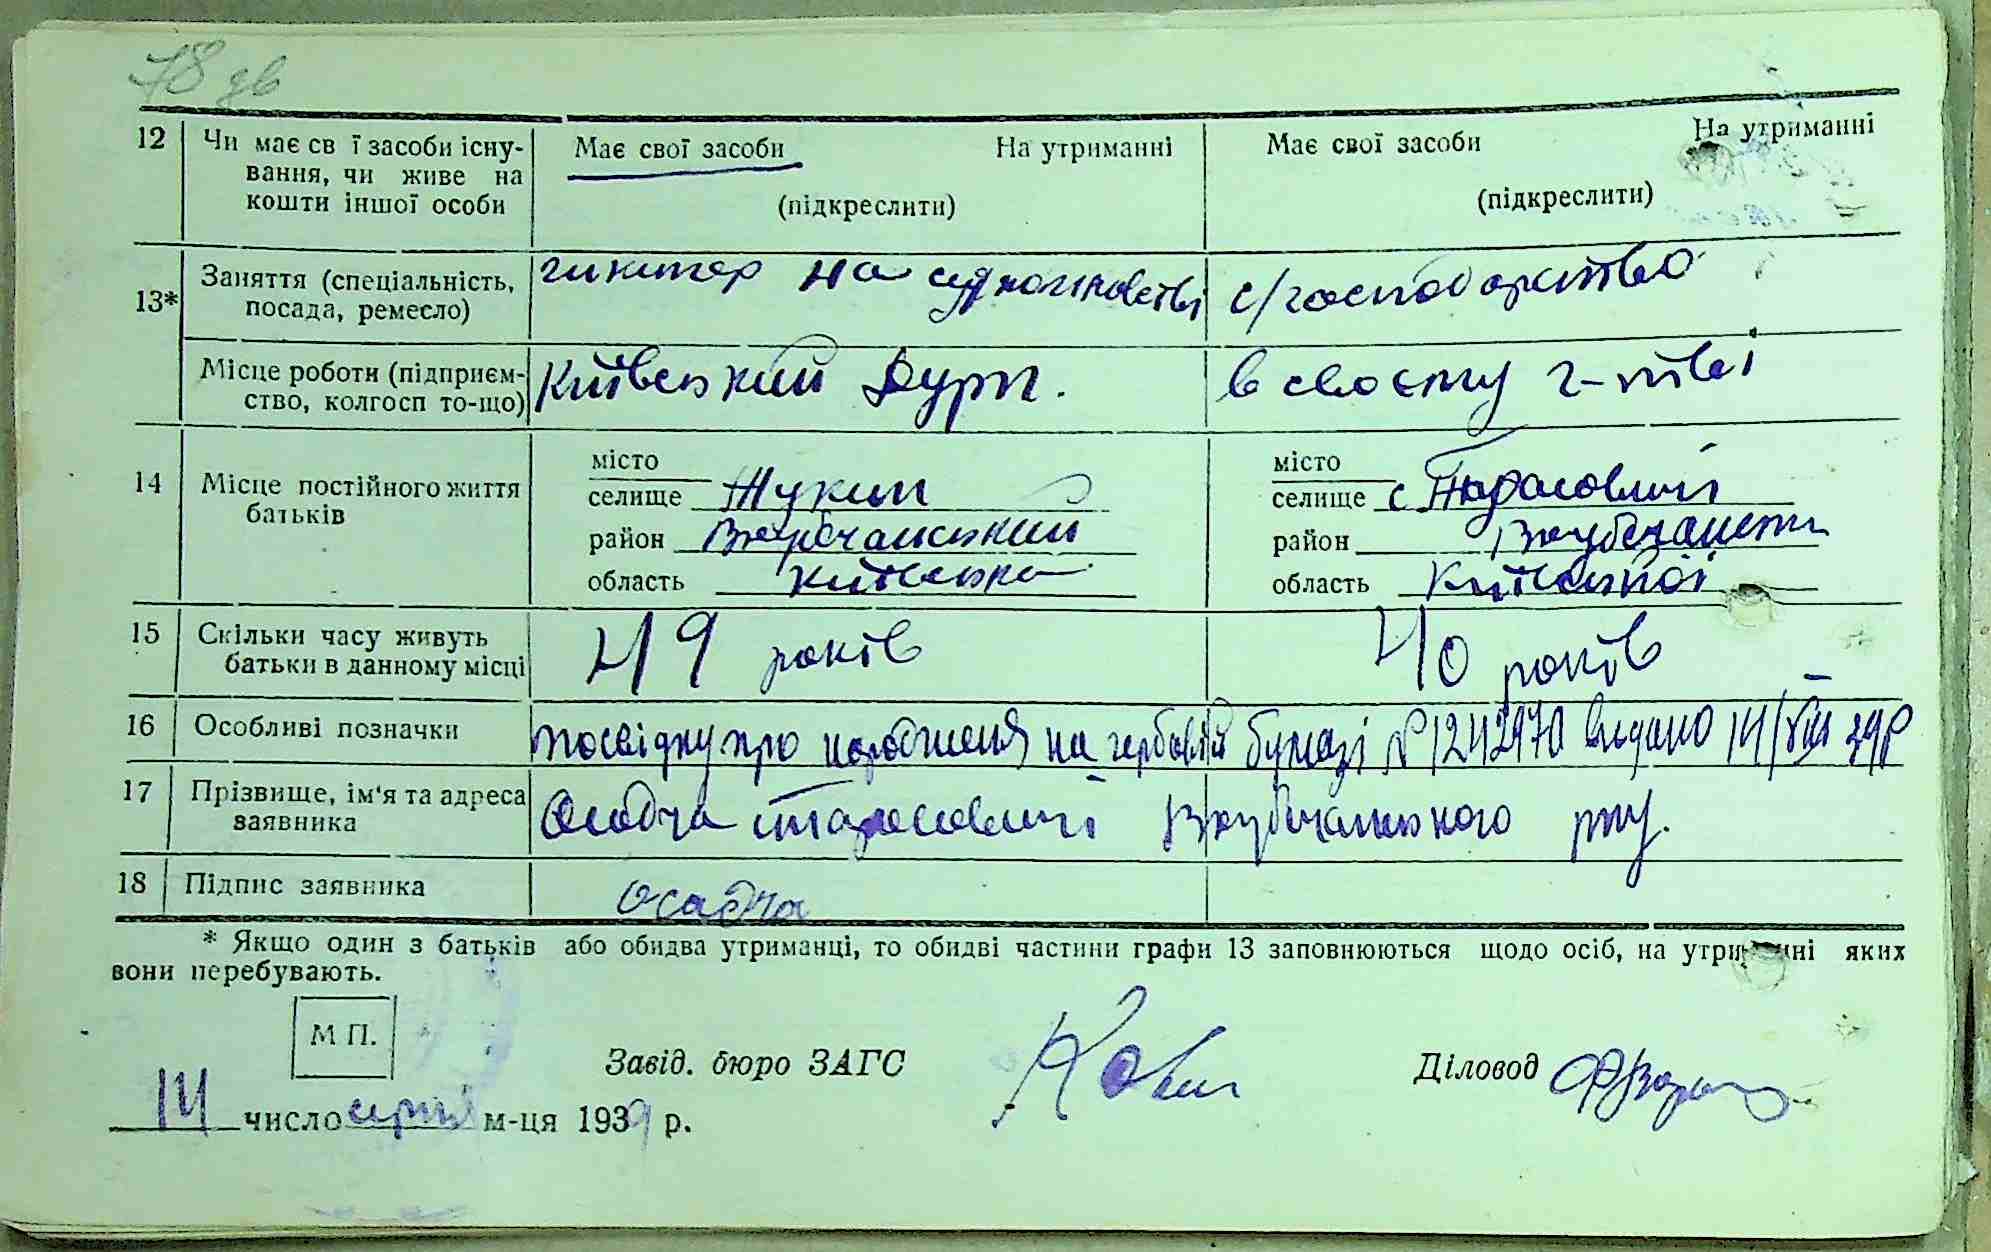 78 зв
12 Чи має св ї засоби існу- Має свої засоби На утриманні Має свої засоби На утриманні
вання, чи живе на
кошти іншої особи (підкреслити) (підкреслити)
13* Заняття (спеціальність, на с/господарство
посада, ремесло)
Місце роботи (підприєм- Київський в своєму г-тві
ство, колгосп то-що)
14 Місце постійного життя місто місто
батьків селище Жукин селище с Тарасовичі
район район
область Київська область Київської
15 Скільки часу живуть 49 років 40 років
батьки в данному місці
16 Особливі позначки посвідку про народженя на гербовій бумазі № 1242970 видано 14/VIII 39р
17 Прізвище, ім'я та адреса Осадча Тарасовичі
заявника
18 Підпис заявника Осадча
* Якщо один з батьків або обидва утриманці, то обидві частини графи 13 заповнюються щодо осіб, на утри нні яких
вони перебувають.
М П.
Завід. бюро ЗАГС Діловод
14 число серпня м-ця 1939 р.